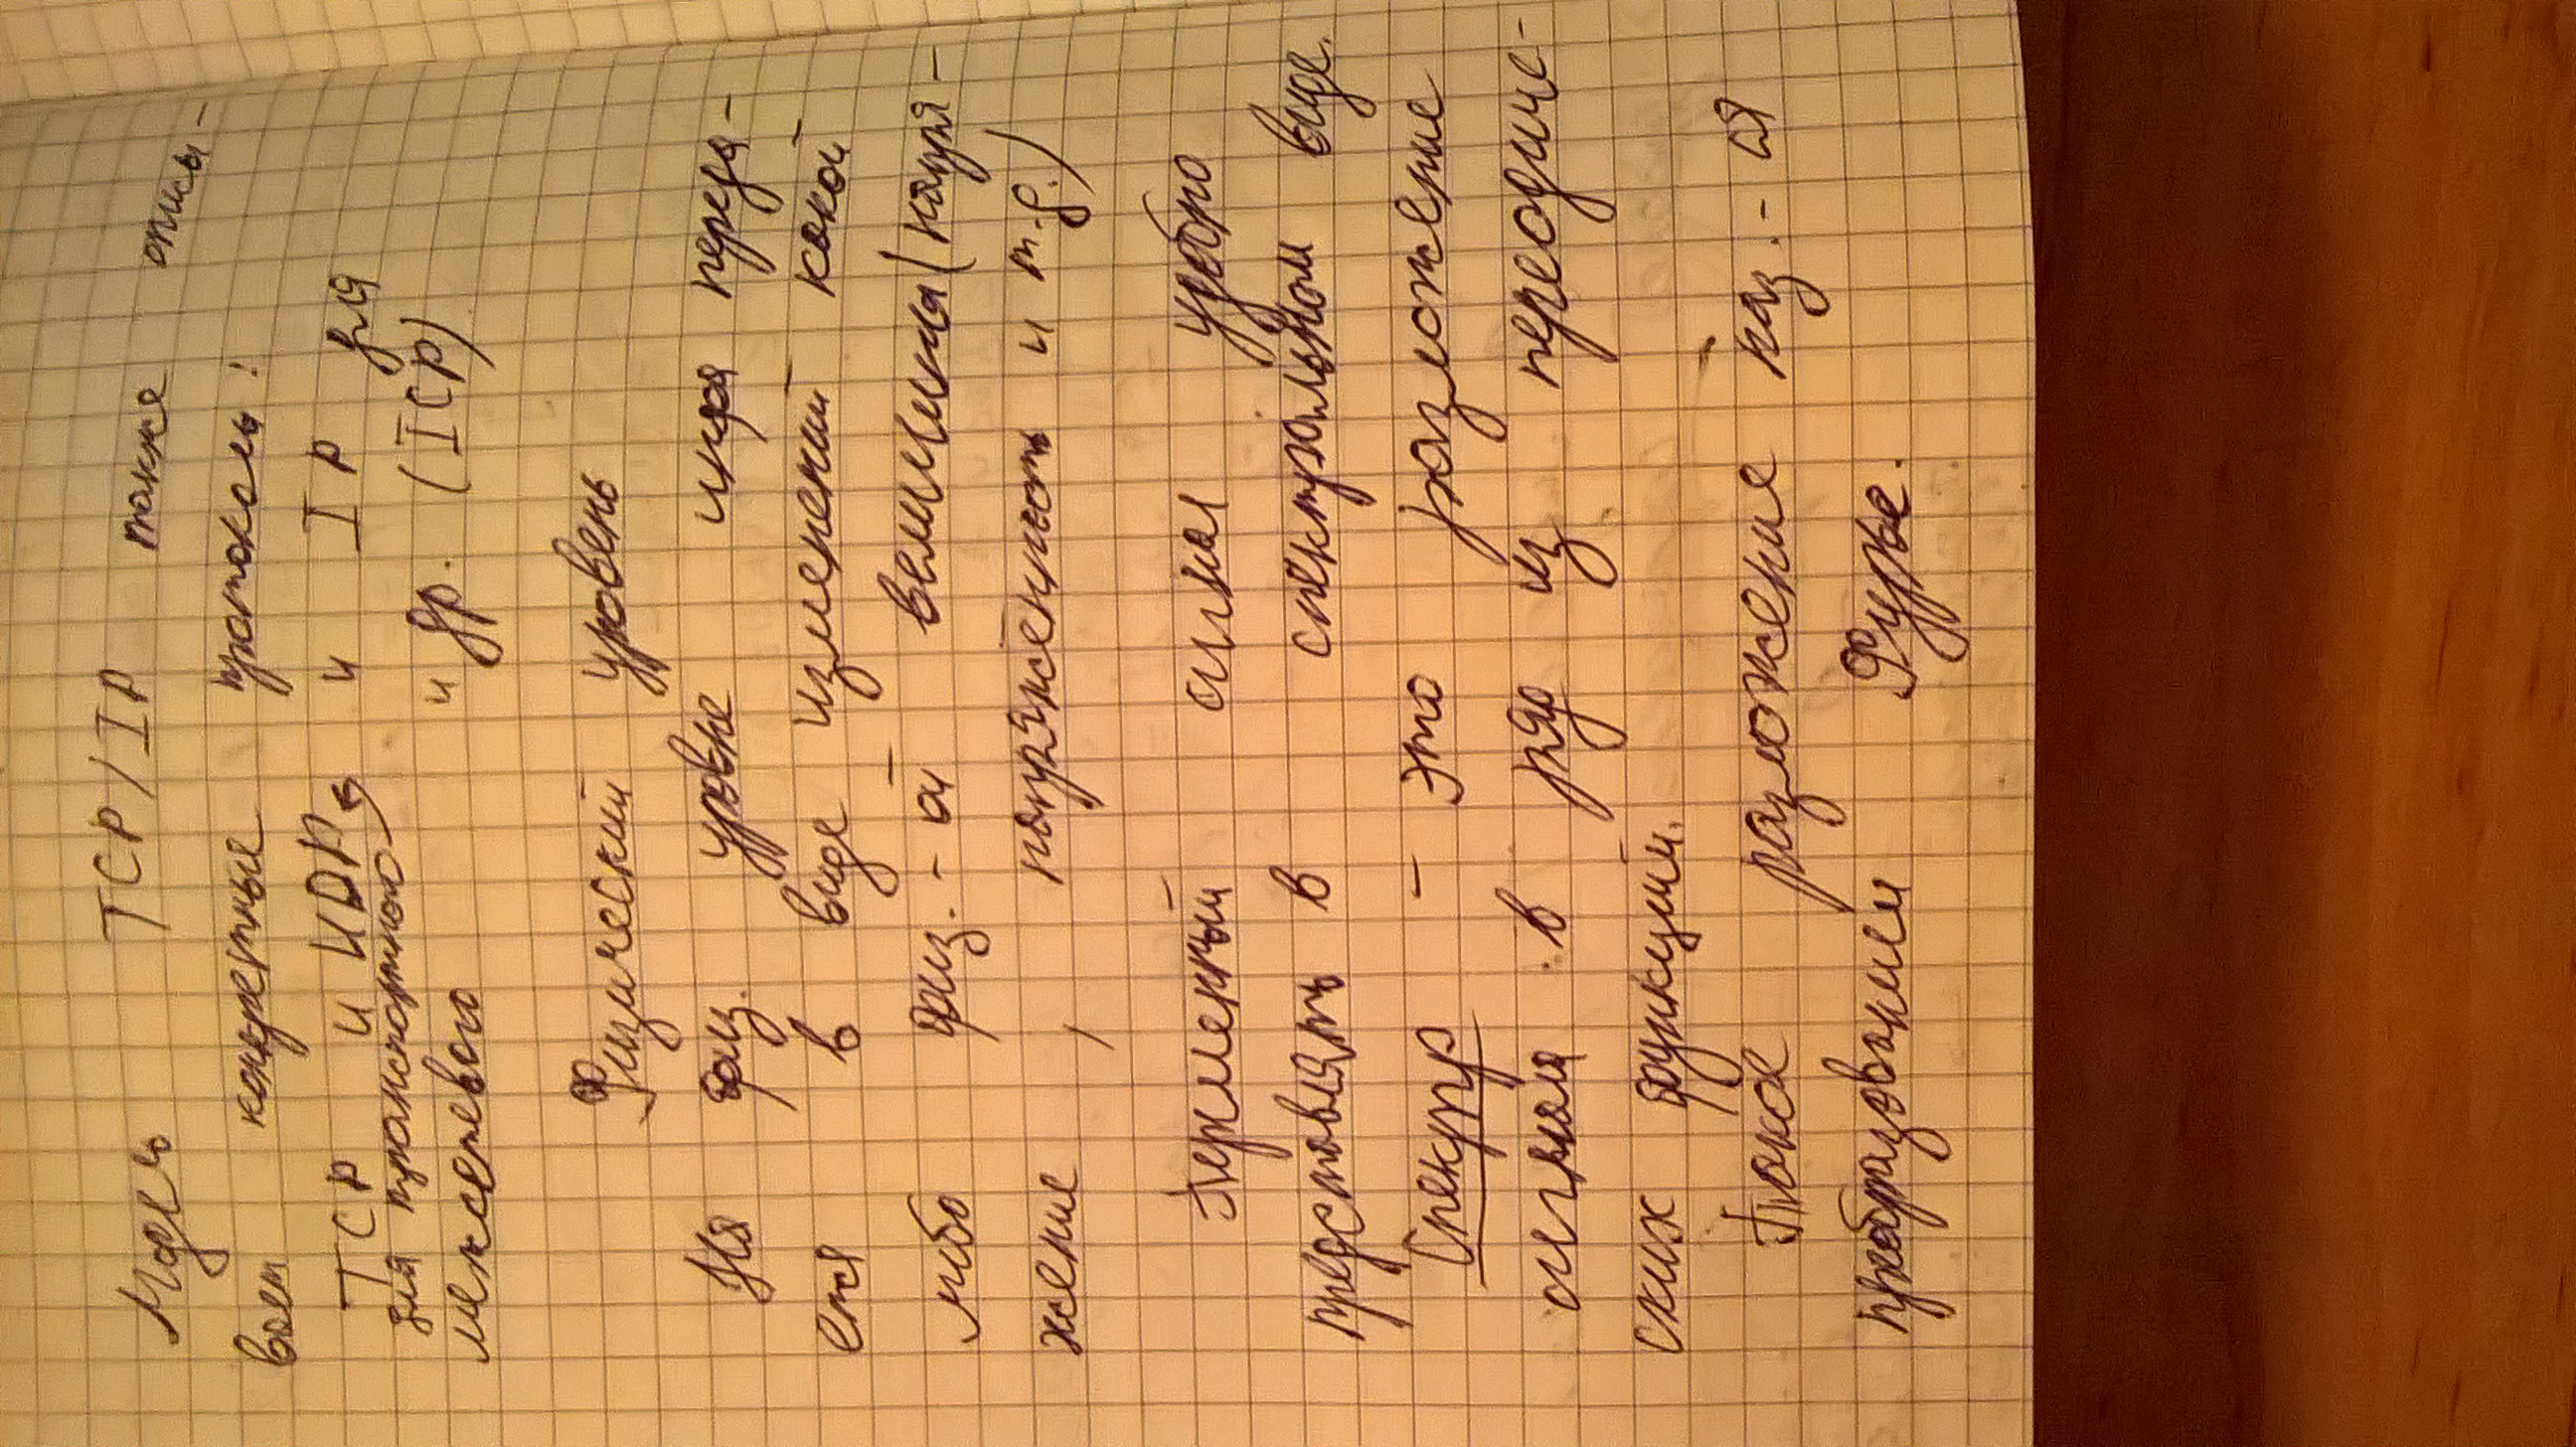 Модель TCP/IP также описы-
вает конкретные протоколы:
TCP и UDP и IP для
для транспортного
межсетевого и др. (ICP)
Физический уровень
На физ. уровне инфа переда-
ется в виде изменений какой
либо физ.-ой величины (напря-
жение, напряжённость и т.д.)
Переменный сигнал удобно
представлять в спектральном виде.
Спектр - это разложение
сигнала в ряд из переодиче-
ских функций.
Такое разложение наз.-ся
преобразованием Фурье.